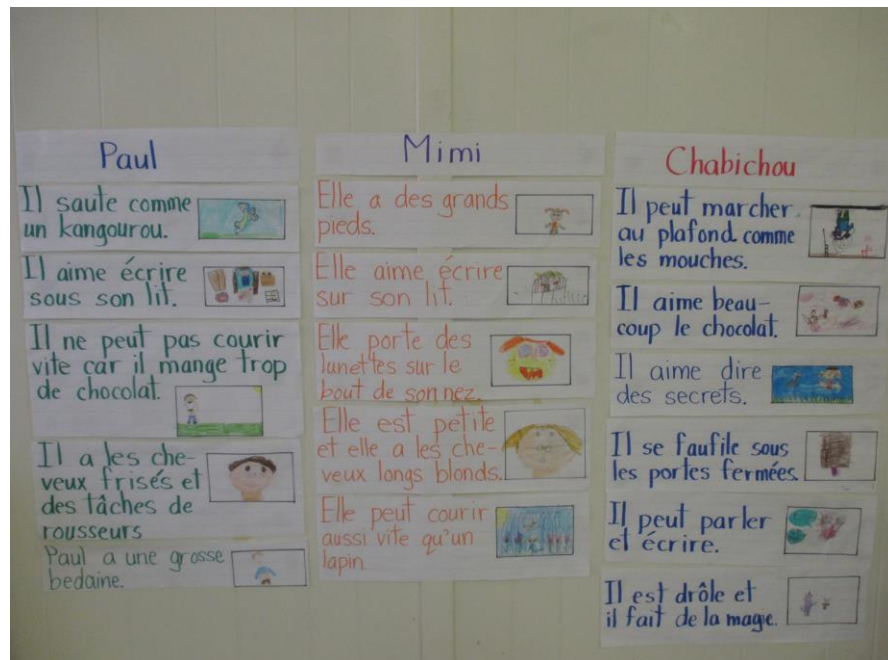 Paul
Il saute comme
un kangourou.
Il aime écrire
sous son lit.
Il ne peut pas courir
vite car il mange trop
de chocolat.
Il a les che-
veux frisés et
des tâches de
rousseurs
Paul a une grosse
bedaine.
Mimi
Elle a des grands
pieds.
Elle aime écrire
sur son lit.
Elle porte des
lunettes sur le
bout de son nez.
Elle est petite
et elle a les che-
veux longs blonds.
Elle peut courir
aussi vite qu'un
lapin.
Chabichou
Il peut marcher
au plafond comme
les mouches.
Il aime beau-
coup le chocolat.
Il aime dire
des secrets.
Il se faufile sous
les portes fermées.
Il peut parler
et écrire.
Il est drôle et
il fait de la magie.